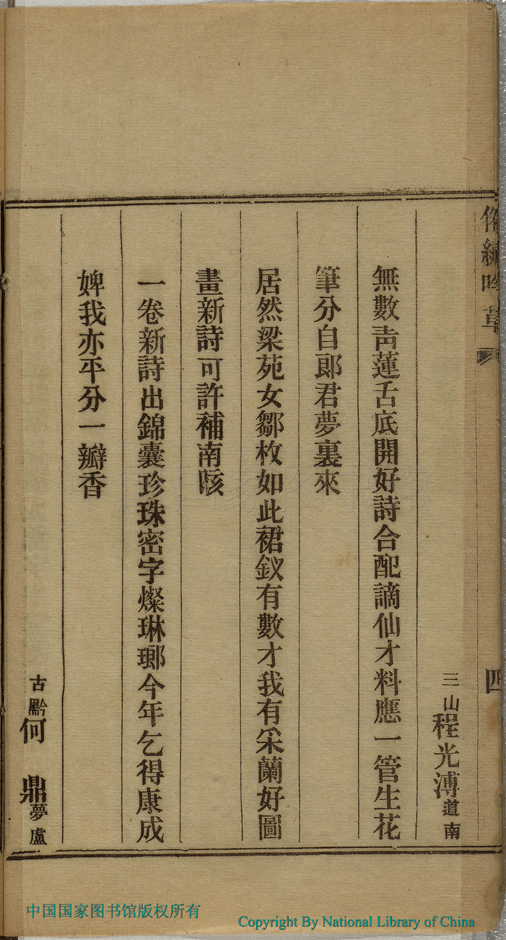 吟草
四
三山程光溥道南
無數靑蓮舌底開好詩合配謫仙才料應一管生花
筆分自郞君夢裏來
居然梁苑女鄒枚如此裙釵有數才我有采蘭好圖
畫新詩可許補南陔
一卷新詩出錦囊珍珠密字燦琳瑯今年乞得康成
婢我亦平分一瓣香
古黔何鼎夢盧
中国国家图书馆版权所有
Copyright By National Library of China